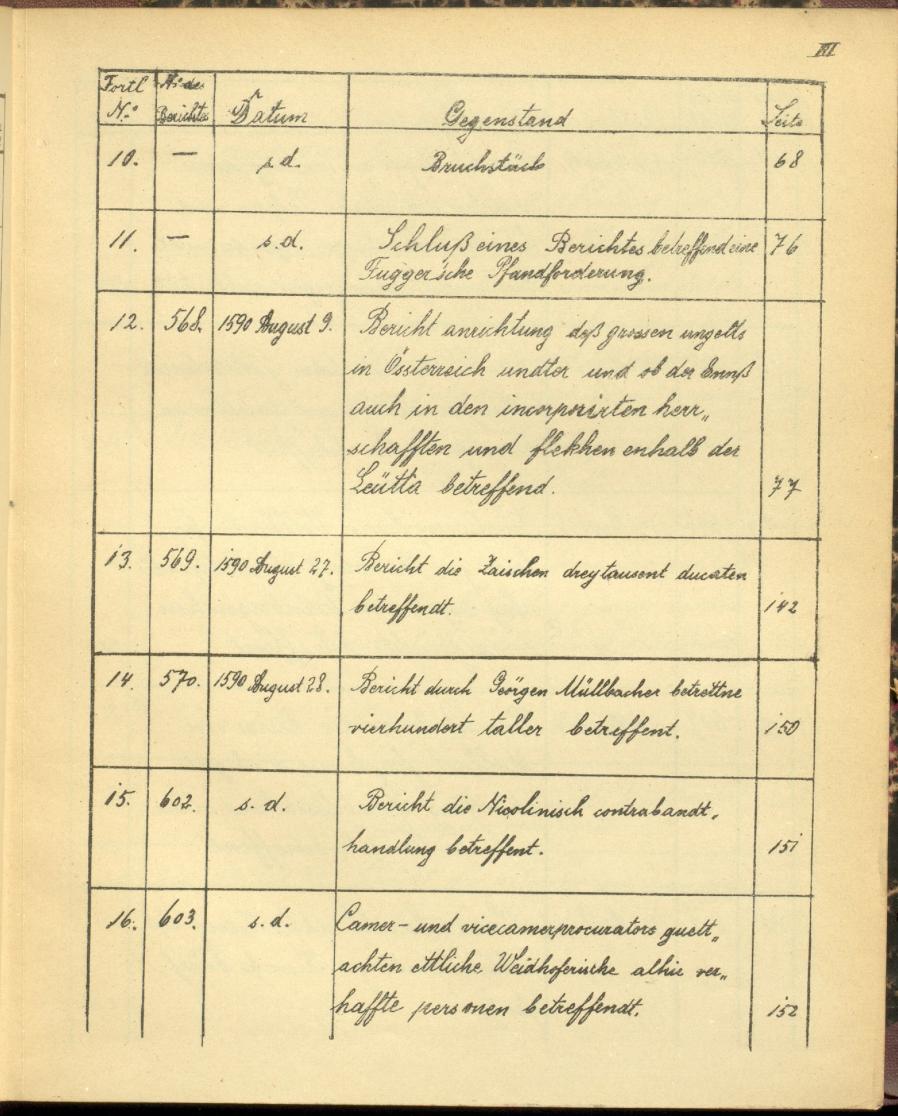 III
Fortl No. | No. des Berichts | Datum | Gegenstand | Seite
10. — s.d. Bruchstück 68
11. — s.d. Schluß eines Berichtes betreffend eine 76
Fugger'sche Pfandforderung.
12. 568. 1590 August 9. Bericht anrichtung deß grossen ungelts
in Össterreich undter und ob der Ennß
auch in den incorporirten herr„
schafften und flekhen enhalb der
Leütta betreffend. 77
13. 569. 1590 August 27. Bericht die Zaischen dreytausent ducaten
betreffendt. 142
14. 570. 1590 August 28. Bericht durch Geörgen Müllbacher betrettne
vierhundert taller betreffent. 150
15. 602. s. d. Bericht die Nicolinisch contrabandt„
handlung betreffent. 151
16. 603. s. d. Camer- und vicecamerprocurators guett„
achten ettliche Weidhoferische alhie ver„
haffte personen betreffendt. 152